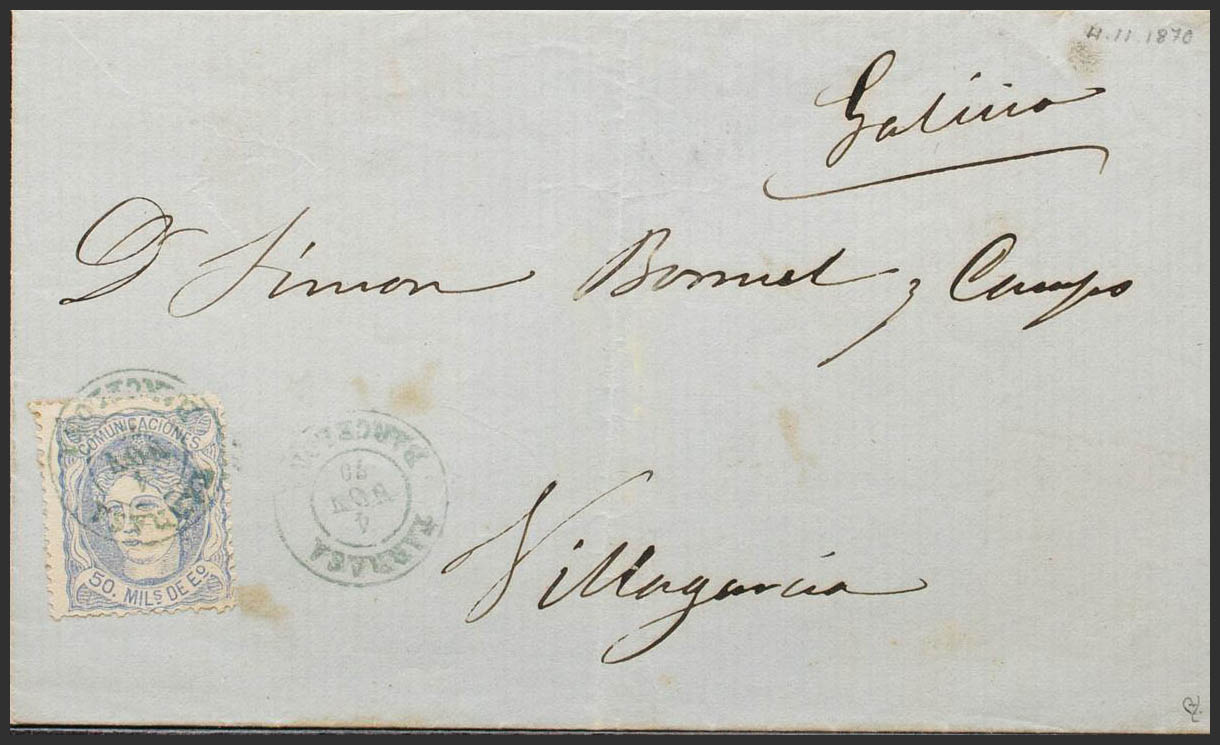 4.11.1870
Galicia
D Simon Bonuel y Campo
COMUNICACIONES
50. MILS DE Eº.
TARRASA
4
NOV
70
BARCELONA
Villagarcia